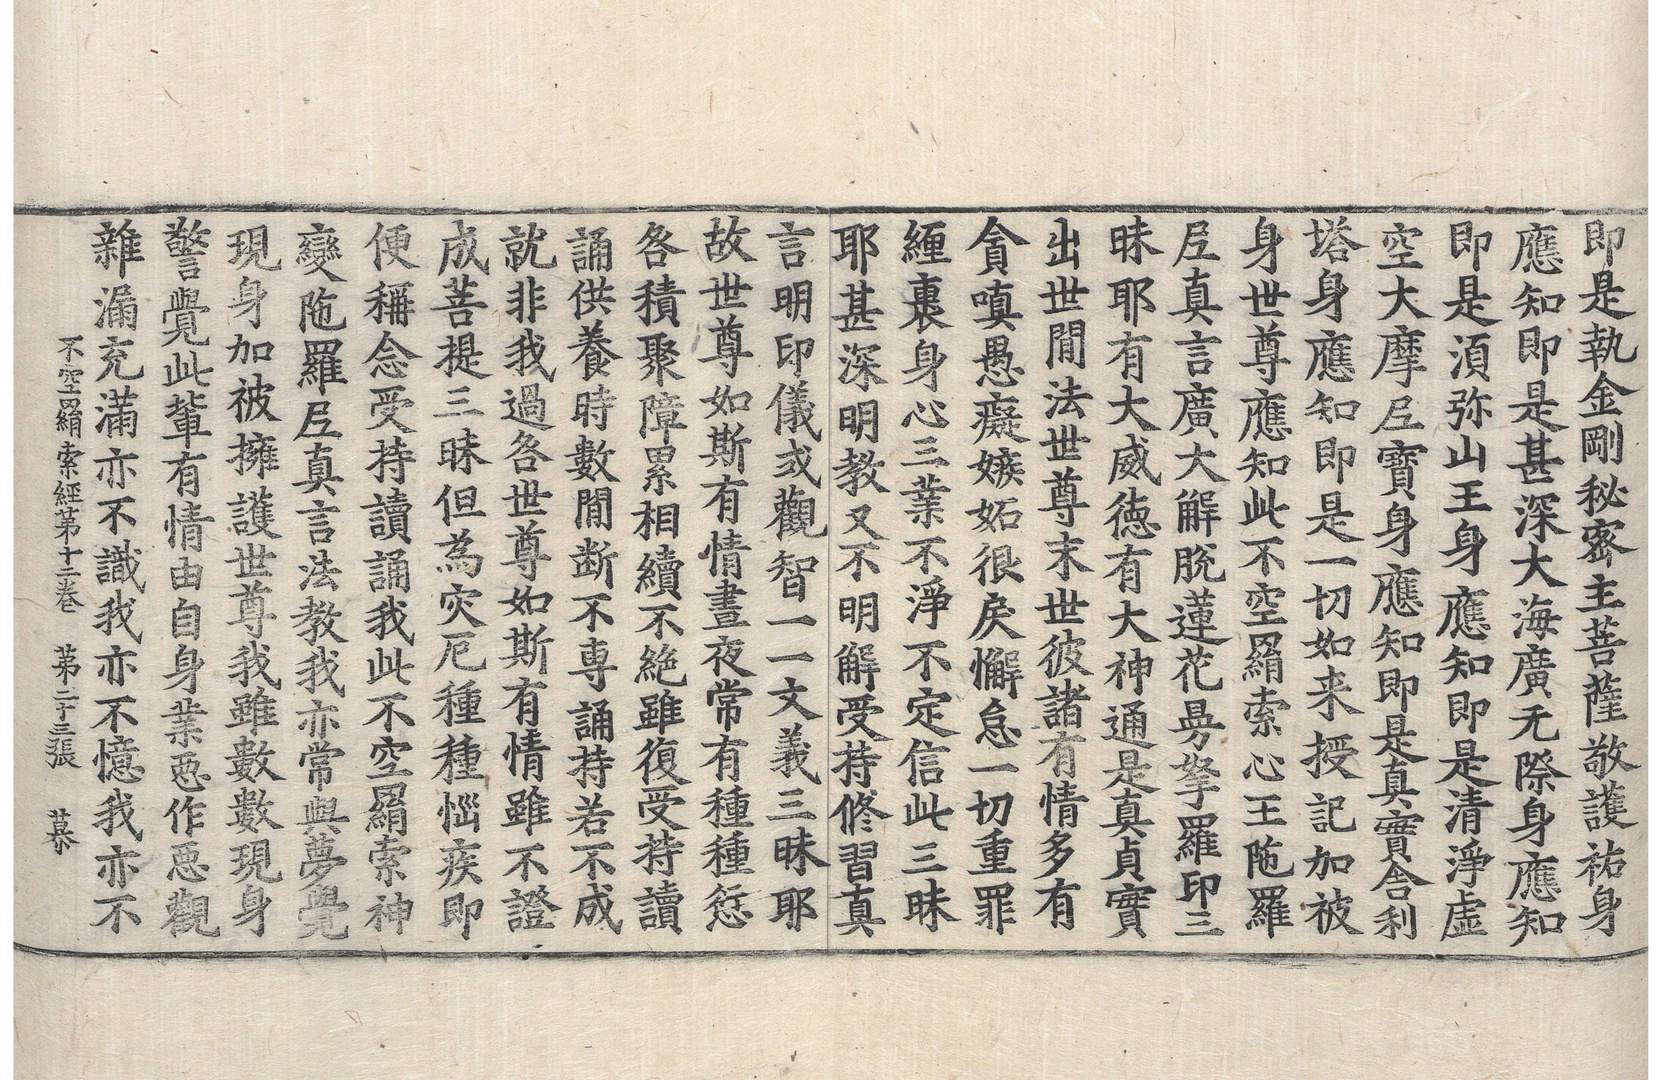 即是執金剛秘密主菩薩敬護祐身
應知即是甚深大海廣无際身應知
即是湏弥山王身應知即是清淨虛
空大摩尼寶身應知即是真實舍利
塔身應知即是一切如来授記加被
身世尊應知此不空羂索心王陁羅
尼真言廣大解脫蓮花曼拏羅印三
昧耶有大威徳有大神通是真貞實
出世間法世尊末世彼諸有情多有
貪嗔愚癡嫉妬很戾懈怠一切重罪
纒裹身心三業不淨不定信此三昧
耶甚深明教又不明解受持修習真
言明印儀或觀智一一文義三昧耶
故世尊如斯有情晝夜常有種種愆
各積聚障累相續不絕雖復受持讀
誦供養時數間断不専誦持若不成
就非我過各世尊如斯有情雖不證
成菩提三昧但為灾厄種種惱疾即
便稱念受持讀誦我此不空羂索神
變陁羅尼真言法教我亦常與夢覺
現身加被擁護世尊我雖數數現身
警覺此輩有情由自身業惡作惡觀
雜漏充滿亦不識我亦不憶我亦不
不空羂索經第十二卷　第二十三張　慕